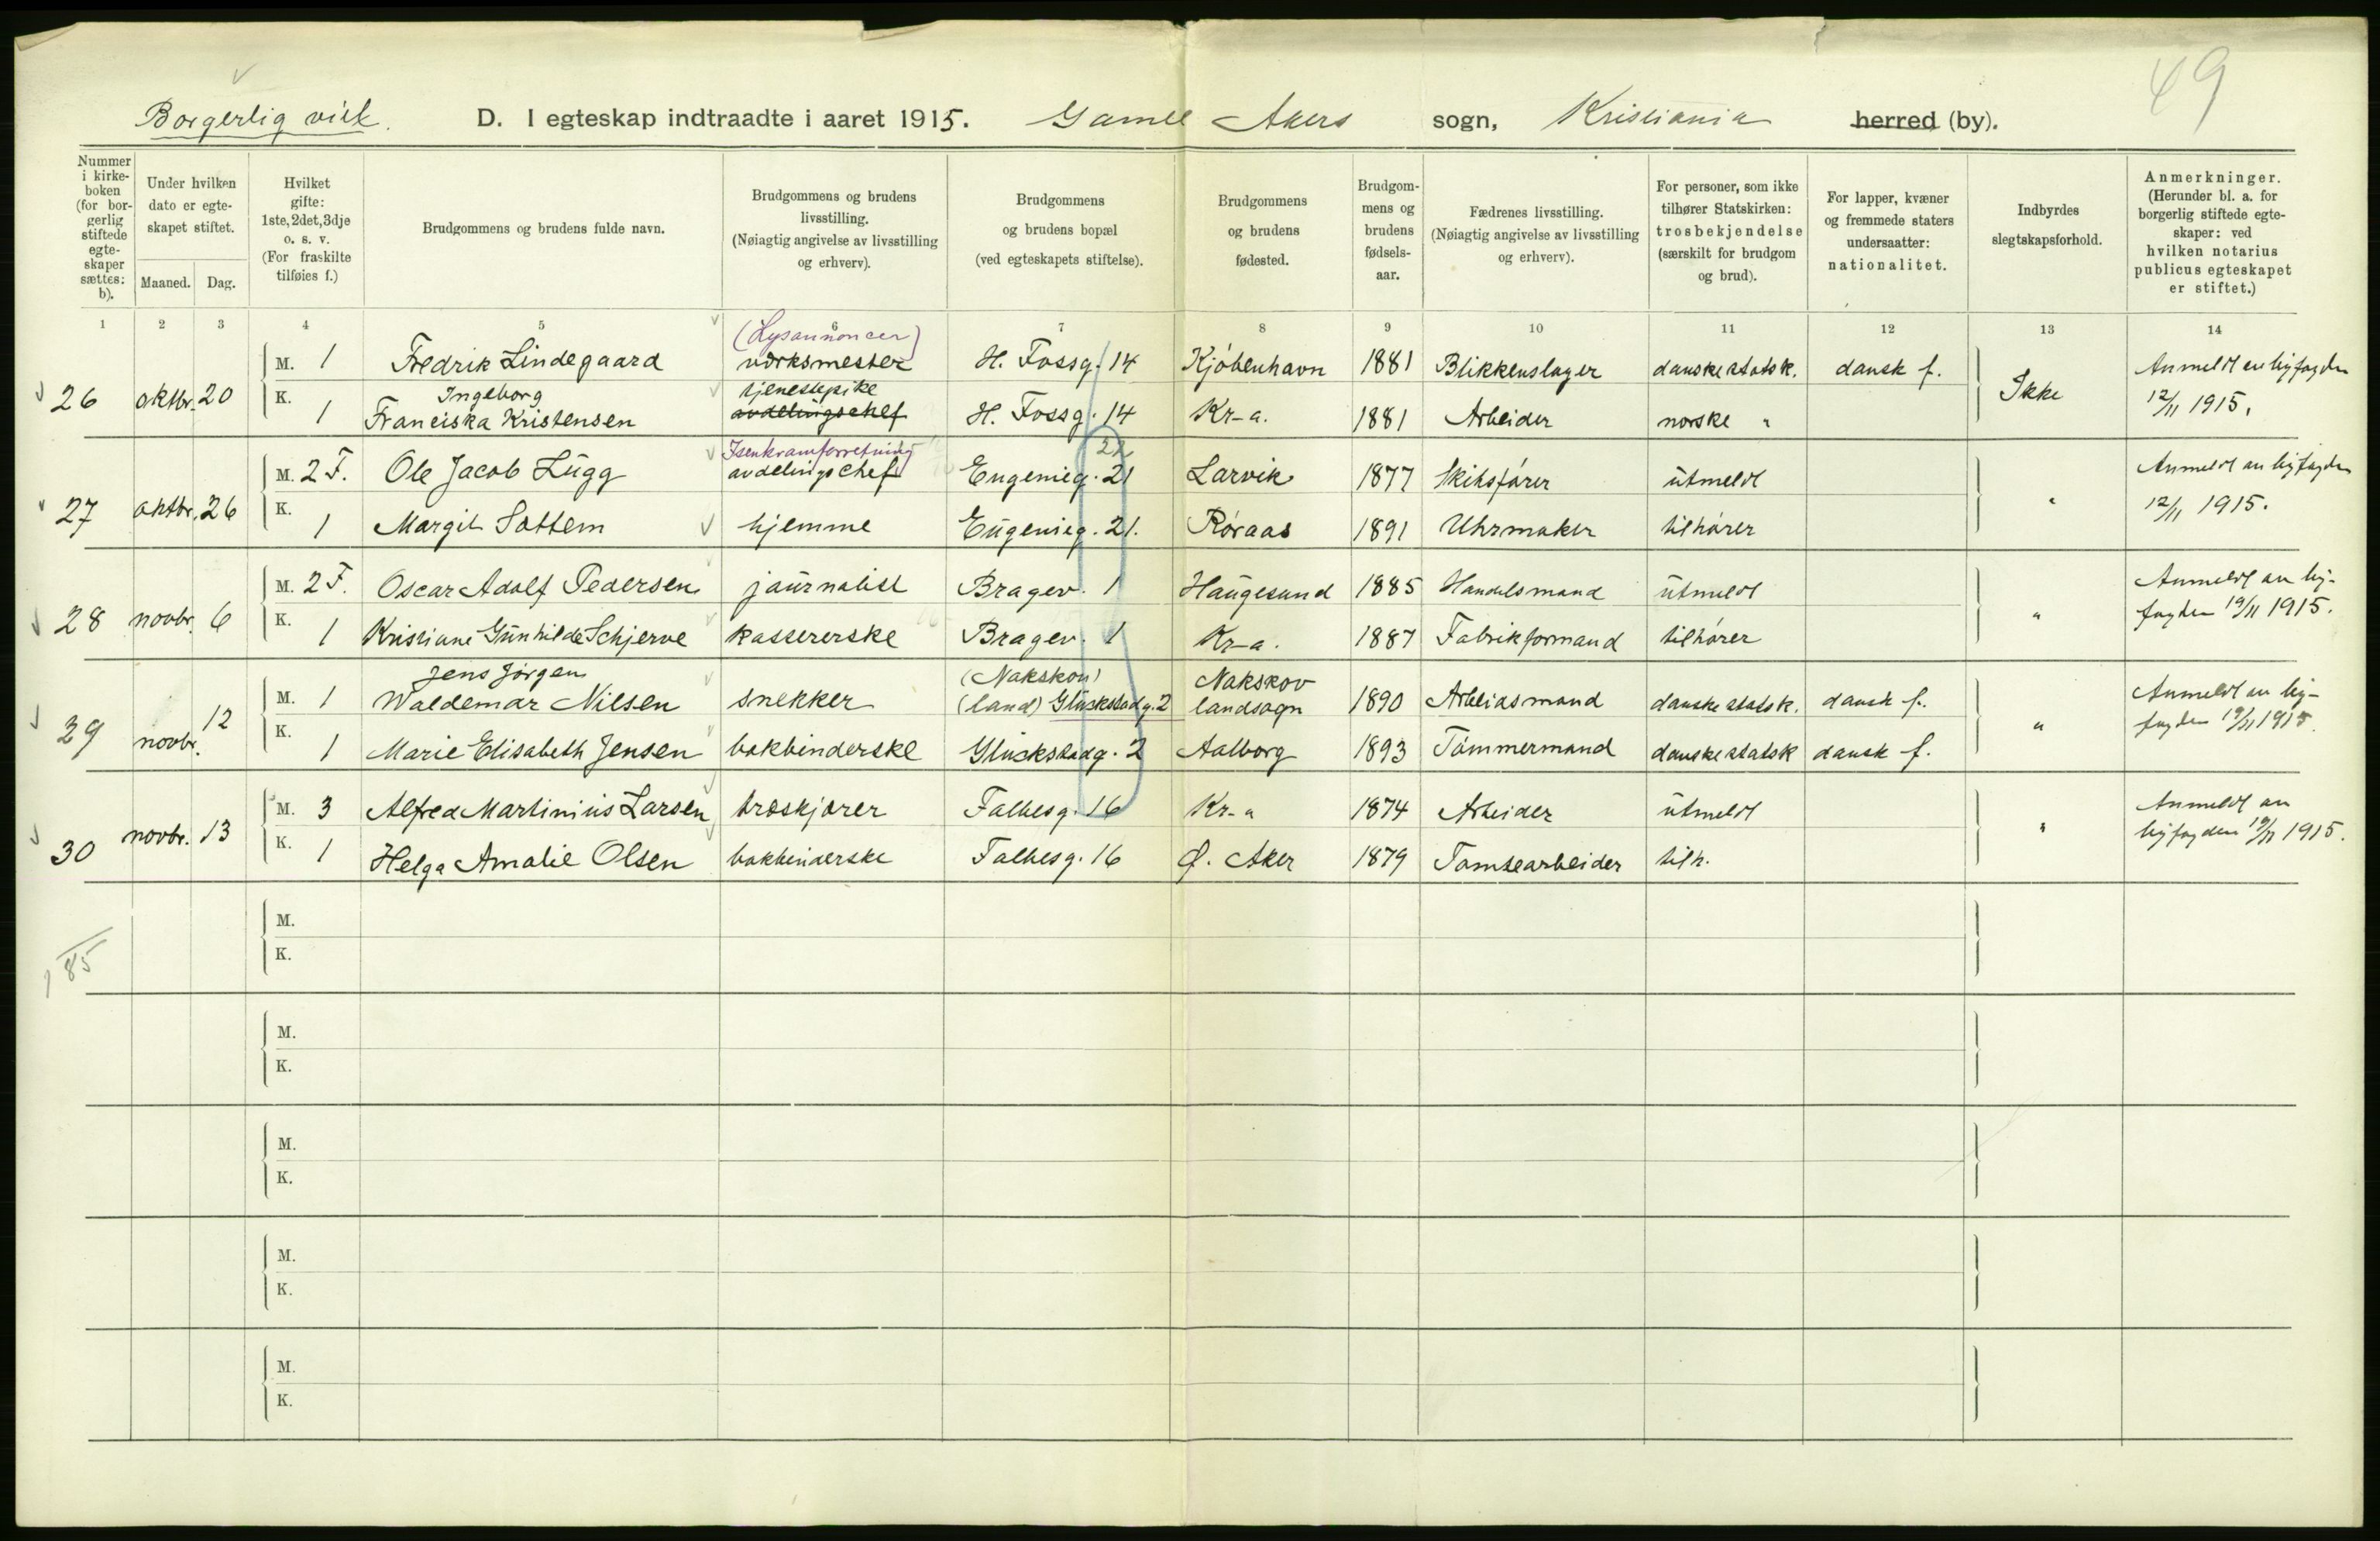 49
Borgerlig viet. D. I egteskap indtraadte i aaret 1915. Gamle Akers sogn, Kristiania herred (by).
Nummer i kirke-boken (for bor-gerlig stiftede egte-skaper sættes: b).
Under hvilken dato er egte-skapet stiftet.
Maaned. Dag.
Hvilket gifte: 1ste, 2det, 3dje o. s. v. (For fraskilte tilføies f.)
Brudgommens og brudens fulde navn.
Brudgommens og brudens livsstilling. (Nøiagtig angivelse av livsstilling og erhverv).
Brudgommens og brudens bopæl (ved egteskapets stiftelse).
Brudgommens og brudens fødested.
Brudgom-mens og brudens fødsels-aar.
Fædrenes livsstilling. (Nøiagtig angivelse av livsstilling og erhverv).
For personer, som ikke tilhører Statskirken: trosbekjendelse (særskilt for brudgom og brud).
For lapper, kvæner og fremmede staters undersaatter: nationalitet.
Indbyrdes slegtskapsforhold.
Anmerkninger. (Herunder bl. a. for borgerlig stiftede egte-skaper: ved hvilken notarius publicus egteskapet er stiftet.)
1 2 3 4 5 6 7 8 9 10 11 12 13 14
(Lysannoncer)
26 oktbr. 20 M. 1 Fredrik Lindegaard verksmester H. Fossg. 14 Kjøbenhavn 1881 Blikkenslager danske statsk. dansk f. Ikke Anmeldt av byfogden
Ingeborg tjenestepike
K. 1 Franciska Kristensen avdelingschef H. Fossg. 14 Kr-a. 1881 Arbeider norske " 12/11 1915.
Isenkramforretning 22
27 oktbr. 26 M. 2 F. Ole Jacob Lugg avdelingschef Eugenieg. 21 Larvik 1877 Skibsfører utmeldt " Anmeldt av byfogden
K. 1 Margit Sottem hjemme Eugenieg. 21. Røraas 1891 Uhrmaker tilhører 12/11 1915.
28 novbr. 6 M. 2 F. Oscar Adolf Pedersen journalist Bragev. 1 Haugesund 1885 Handelsmand utmeldt " Anmeldt av by-
K. 1 Kristiane Gunhilde Schjerve kassererske Bragev. 1 Kr-a. 1887 Fabrikformand tilhører fogden 19/11 1915.
Jens Jørgen (Nakskov Nakskov
29 novbr. 12 M. 1 Waldemar Nilsen snekker (land) Glückstadg. 2 landsogn 1890 Arbeidsmand danske statsk. dansk f. " Anmeldt av by-
K. 1 Marie Elisabeth Jensen bokbinderske Glückstadg. 2 Aalborg 1893 Tømmermand danske statsk dansk f. fogden 19/11 1915.
30 novbr. 13 M. 3 Alfred Martinius Larsen træskjærer Falbesg. 16 Kr-a 1874 Arbeider utmeldt " Anmeldt av
K. 1 Helga Amalie Olsen bokbinderske Falbesg. 16 Ø. Aker 1879 Tomtearbeider tilh. byfogden 19/11 1915.
M.
K.
185
M.
K.
M.
K.
M.
K.
M.
K.